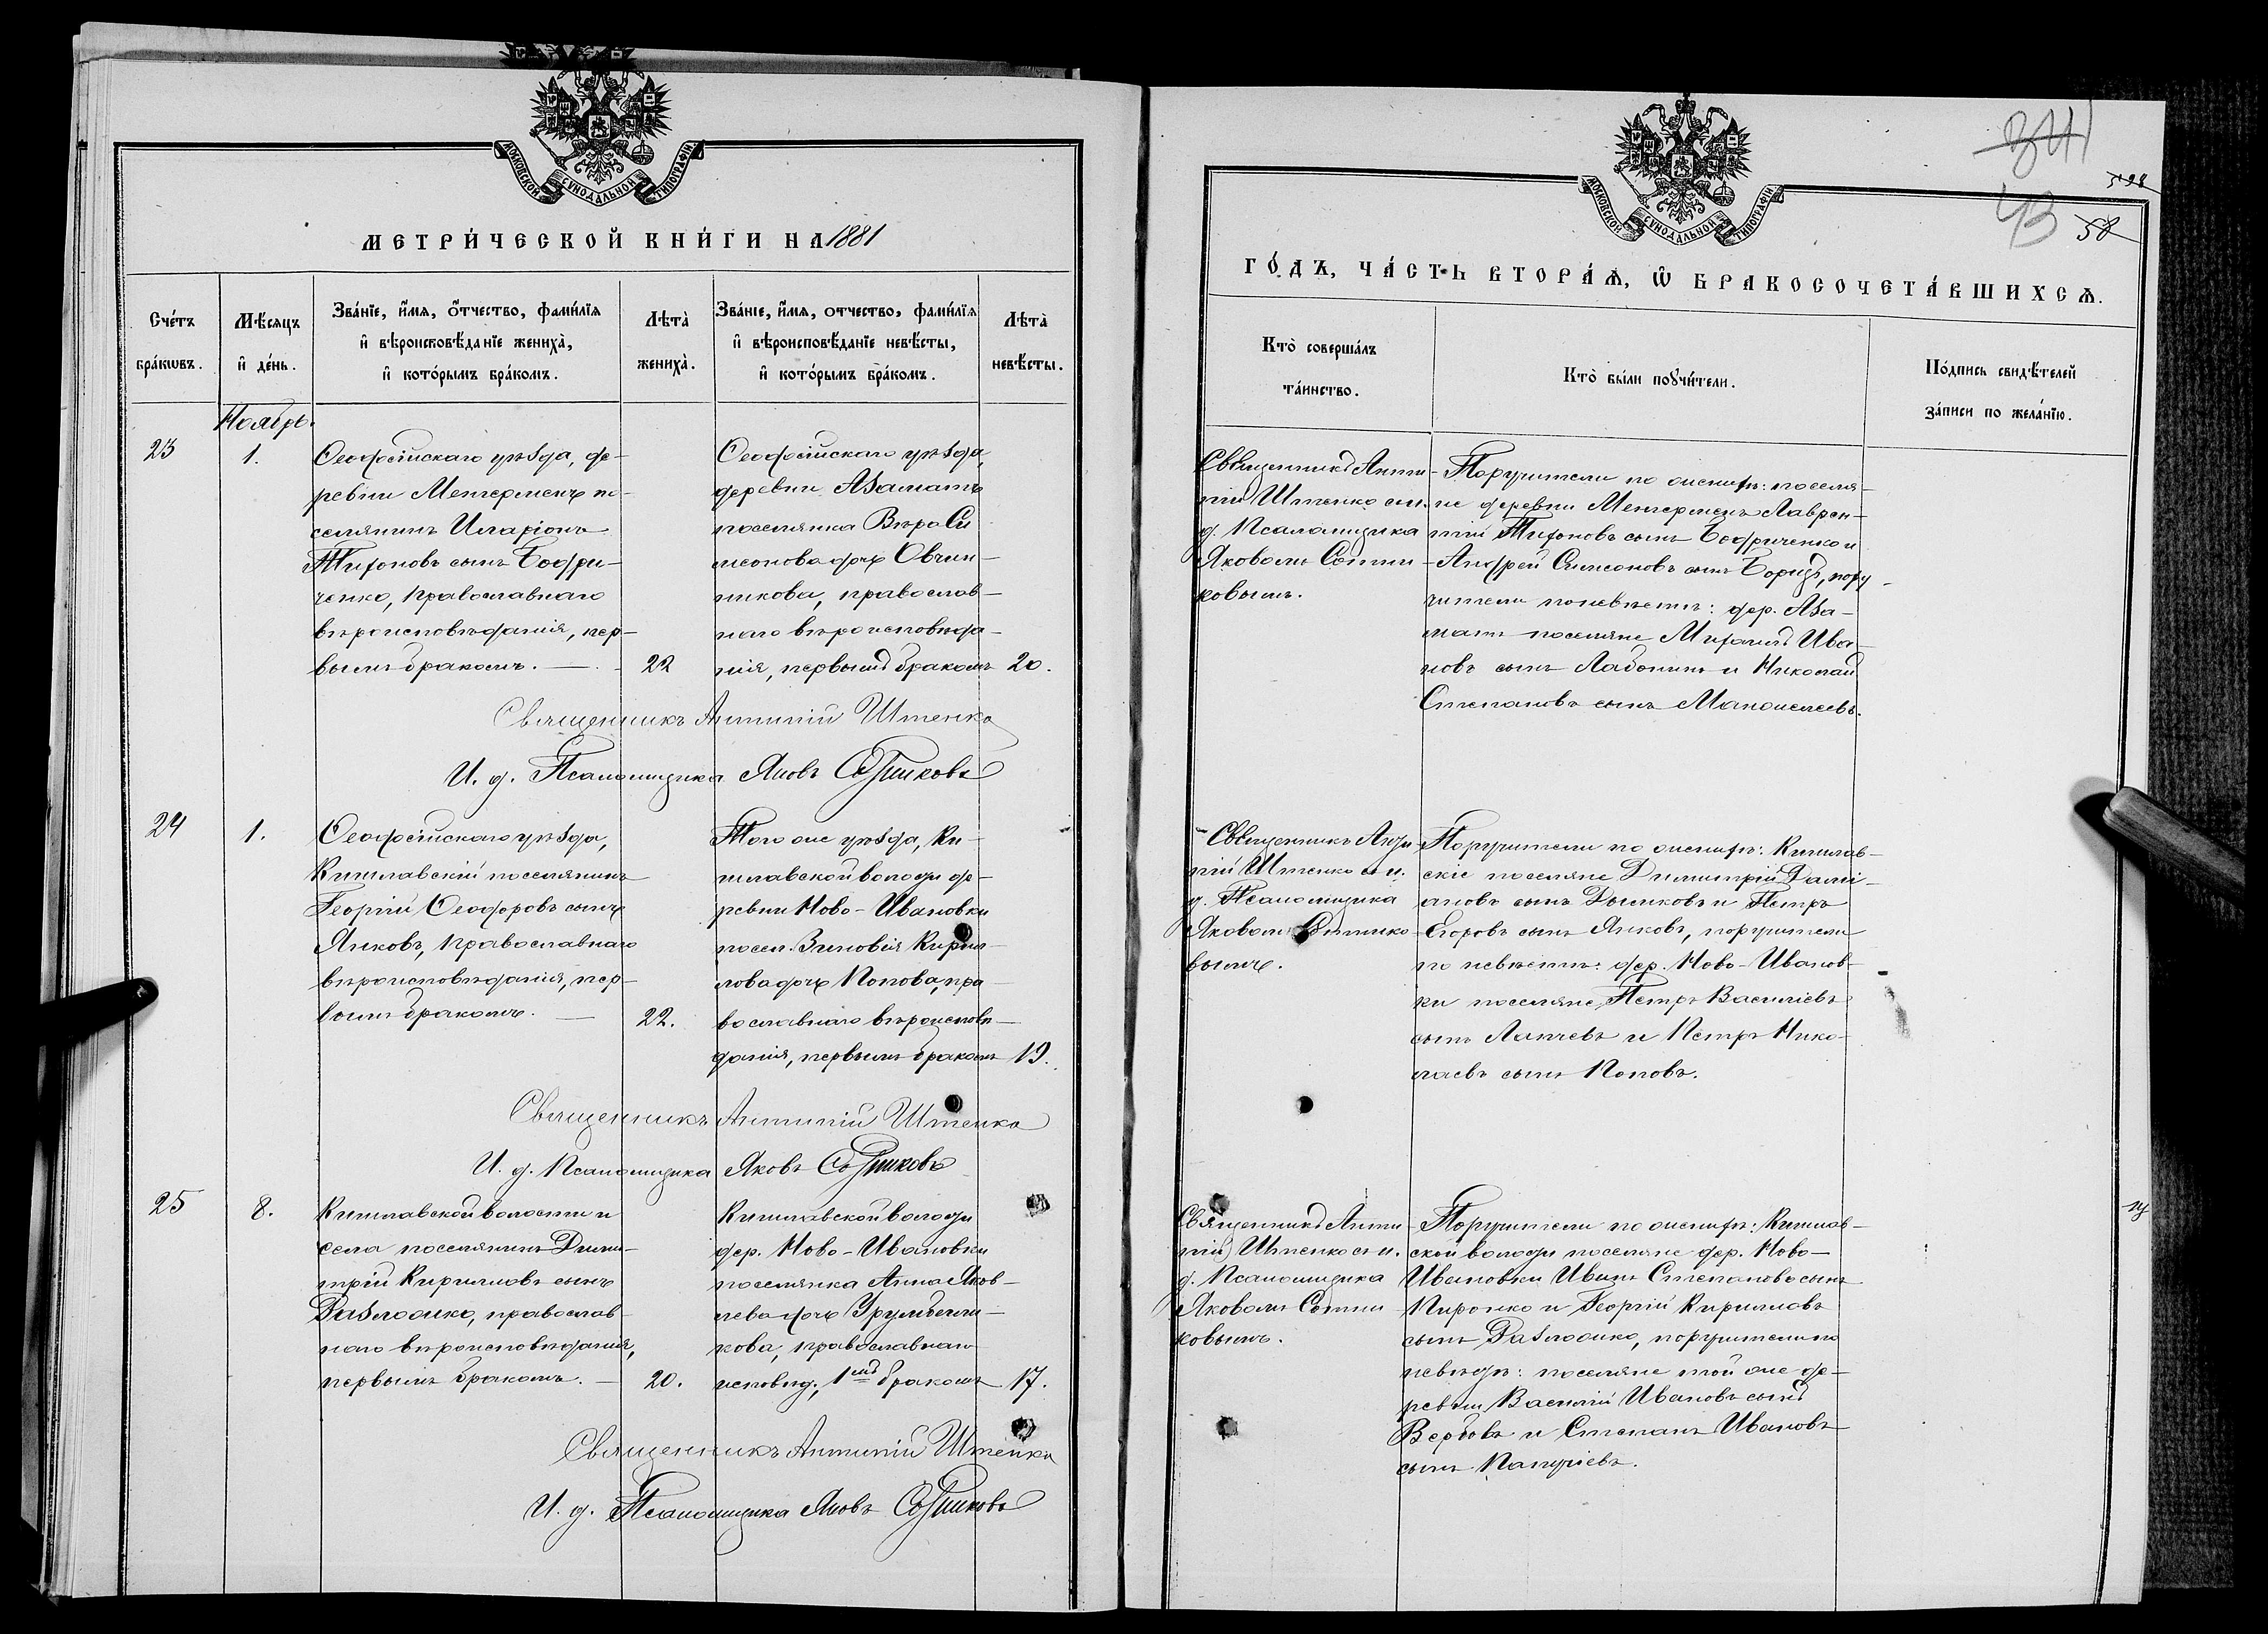 МОСКОВСКОЙ СУНОДАЛЬНОЙ ТИПОГРАФІИ
МЕТРИ́ЧЕСКОЙ КНИ́ГИ НА 1881
Сче́тъ бра́кωвъ.
Мѣ́сяцъ и҆ де́нь.
Зва́нїе, и҆́мя, ѻ҆́тчество, фами́лїя
и҆ вѣроисповѣ́данїе жениха̀,
и҆ кото́рымъ бра́комъ.
Лѣта̀ жениха̀.
Зва́нїе, и҆́мя, отчество, фами́лїя
и҆ вѣроисповѣ́данїе невѣ́сты,
и҆ кото́рымъ бра́комъ.
Лѣта̀ невѣ́сты.
Ноябрь.
23
1.
Ѳеодосійскаго уѣзда, де-
ревни Менгерменъ по-
селянинъ Иларіонъ
Тихоновъ сынъ Бодри-
ченко, православнаго
вѣроисповѣданія, пер-
вымъ бракомъ. —
22
Ѳеодосійскаго уѣзда,
деревни Азаматъ
поселянка Вѣра Си
меонова дочь Овчин-
никова, православ-
наго вѣроисповѣда-
нія, первымъ бракомъ
20.
Священникъ Антипій Штенко
И. д. Псаломщика Яковъ Сотниковъ
24
1.
Ѳеодосійскаго уѣзда,
Кишлавскій поселянинъ
Георгій Ѳеодоровъ сынъ
Янковъ, православнаго
вѣроисповѣданія, пер-
вымъ бракомъ. —
22.
Того же уѣзда, Ки-
шлавской волости де-
ревни Ново-Ивановки
посел. Зиновія Кирил-
лова дочь Попова, пра-
вославнаго вѣроисповѣ-
данія, первымъ бракомъ
19.
Священникъ Антипій Штенко
И. д. Псаломщика Яковъ Сотниковъ
25
8.
Кишлавской волости и
села поселянинъ Дими-
трій Кирилловъ сынъ
Разложко, православ-
наго вѣроисповѣданія,
первымъ бракомъ. —
20.
Кишлавской волости
дер. Ново-Ивановки
поселянка Анна Яков-
лева дочь
кова, православнаго
исповѣд., 1мъ бракомъ
17.
Священникъ Антипій Штенко
И. д. Псаломщика Яковъ Сотниковъ
МОСКОВСКОЙ СУНОДАЛЬНОЙ ТИПОГРАФІИ
341
43
58
ГО́ДЪ, ЧА́СТЬ ВТОРА́Ѧ, Ѡ҆ БРАКОСОЧЕТА́ВШИХСѦ.
Кто̀ соверша́лъ та́инство.
Кто̀ бы́ли порꙋчи́тели.
По́дпись свидѣ́телей
за́писи по жела́нїю.
Священникъ Анти-
пій Штенко съ и.
д. Псаломщика
Яковомъ Сотни-
ковымъ.
Поручители по женихѣ: поселя-
не деревни Менгерменъ Лаврен-
тій Тихоновъ сынъ Бодриченко и
Андрей Симеоновъ сынъ Борщъ, пору-
чители по невѣстѣ: дер. Аза-
матъ поселяне Михаилъ Ива-
новъ сынъ Лабонинъ и Николай
Степановъ сынъ Манойлеевъ.
Священникъ Анти-
пій Штенко съ и.
д. Псаломщика
Яковомъ Сотнико-
вымъ.
Поручители по женихѣ: Кишлав-
скіе поселяне Димитрій Дамі-
ановъ сынъ Дымковъ и Петръ
Егоровъ сынъ Янковъ, поручители
по невѣстѣ: дер. Ново-Иванов-
ки поселяне Петръ Василіевъ
сынъ Лапчевъ и Петръ Нико-
лаевъ сынъ Поповъ.
Священникъ Анти-
пій Штенко съ и.
д. Псаломщика
Яковомъ Сотни-
ковымъ.
Поручители по женихѣ: Кишлав-
ской волости поселяне дер. Ново-
Ивановки Иванъ Степановъ сынъ
Пиронко и Георгій Кирилловъ
сынъ Разложко, поручители по
невѣстѣ: поселяне той же де-
ревни Василій Ивановъ сынъ
Вербовъ и Степанъ Ивановъ
сынъ Капуріевъ.